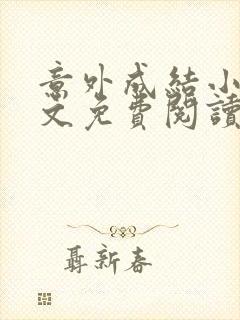 意外成結小
文免費閱讀
聶新春